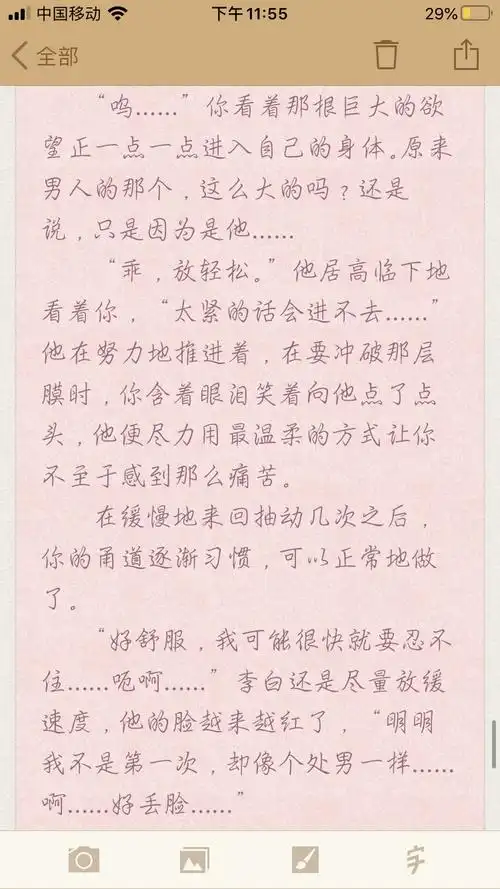 中国移动 下午11:55 29%
全部
“呜……”你看着那根巨大的欲
望正一点一点进入自己的身体。原来
男人的那个，这么大的吗？还是
说，只是因为是他……
“乖，放轻松。”他居高临下地
看着你，“太紧的话会进不去……”
他在努力地推进着，在要冲破那层
膜时，你含着眼泪笑着向他点了点
头，他便尽力用最温柔的方式让你
不至于感到那么痛苦。
在缓慢地来回抽动几次之后，
你的甬道逐渐习惯，可以正常地做
了。
“好舒服，我可能很快就要忍不
住……呃啊……”李白还是尽量放缓
速度，他的脸越来越红了，“明明
我不是第一次，却像个处男一样……
啊……好丢脸……”
字